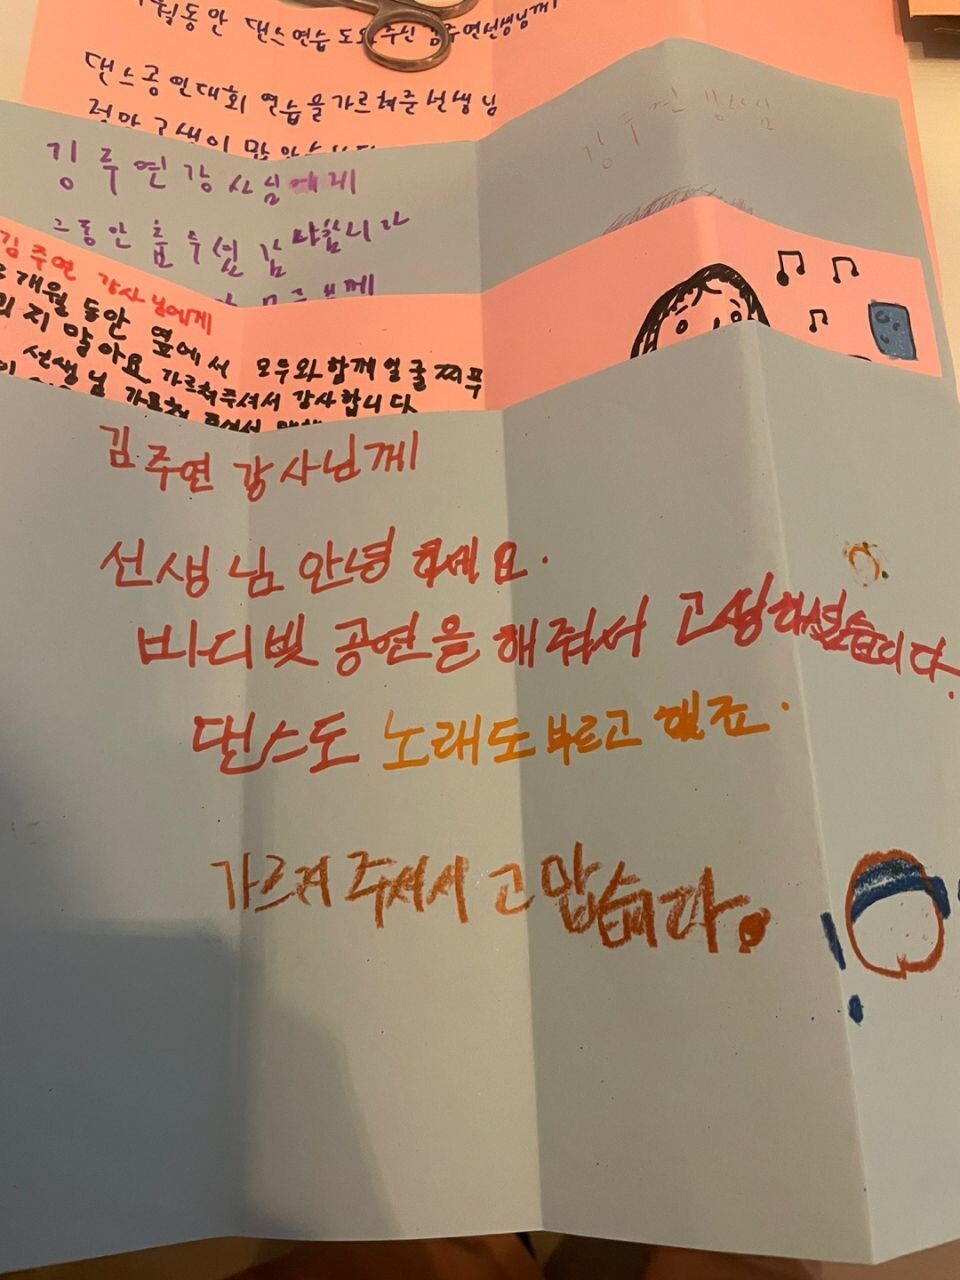 개월동안 댄스연습 도와주신 김주연선생님께
댄스공연대회 연습을 가르쳐준 선생님
정말 고생이 많았습니다
김주연강사님
김주연강사님에게
그동안 춤추셨 감사합니다
김주연 강사님에게
개월 동안 옆에서 모두와 함께 얼굴 찌푸
리지 말아요 가르쳐주셔서 감사합니다
선생님 가르쳐 주셔서
김주연 강사님께
선생님 안녕하세요.
바디빗 공연을 해줘서 고생하셨습니다.
댄스도 노래도 부르고 했죠.
가르쳐 주셔서 고맙습니다.